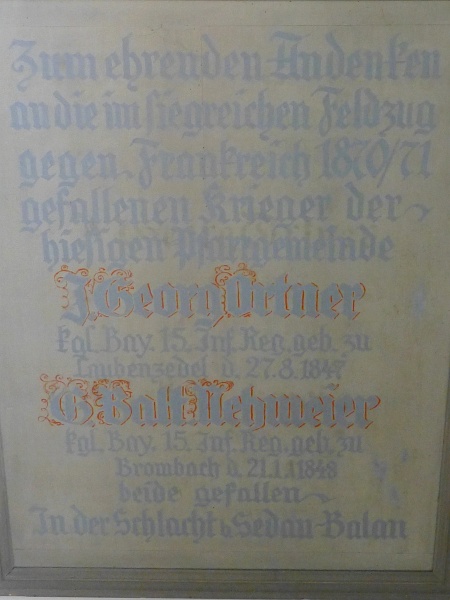 Zum ehrenden Andenken
an die im siegreichen Feldzug
gegen Frankreich 1870/71
gefallenen Krieger der
hiesigen Pfarrgemeinde
J. Georg Ortner
kgl. Bay. 15. Inf. Reg. geb. zu
Laubenzedel d. 27.8.184
G. Balt. Nehmeier
kgl. Bay. 15. Inf. Reg. geb. zu
Brombach d. 21.1.1848
beide gefallen
In der Schlacht b. Sedan-Balan